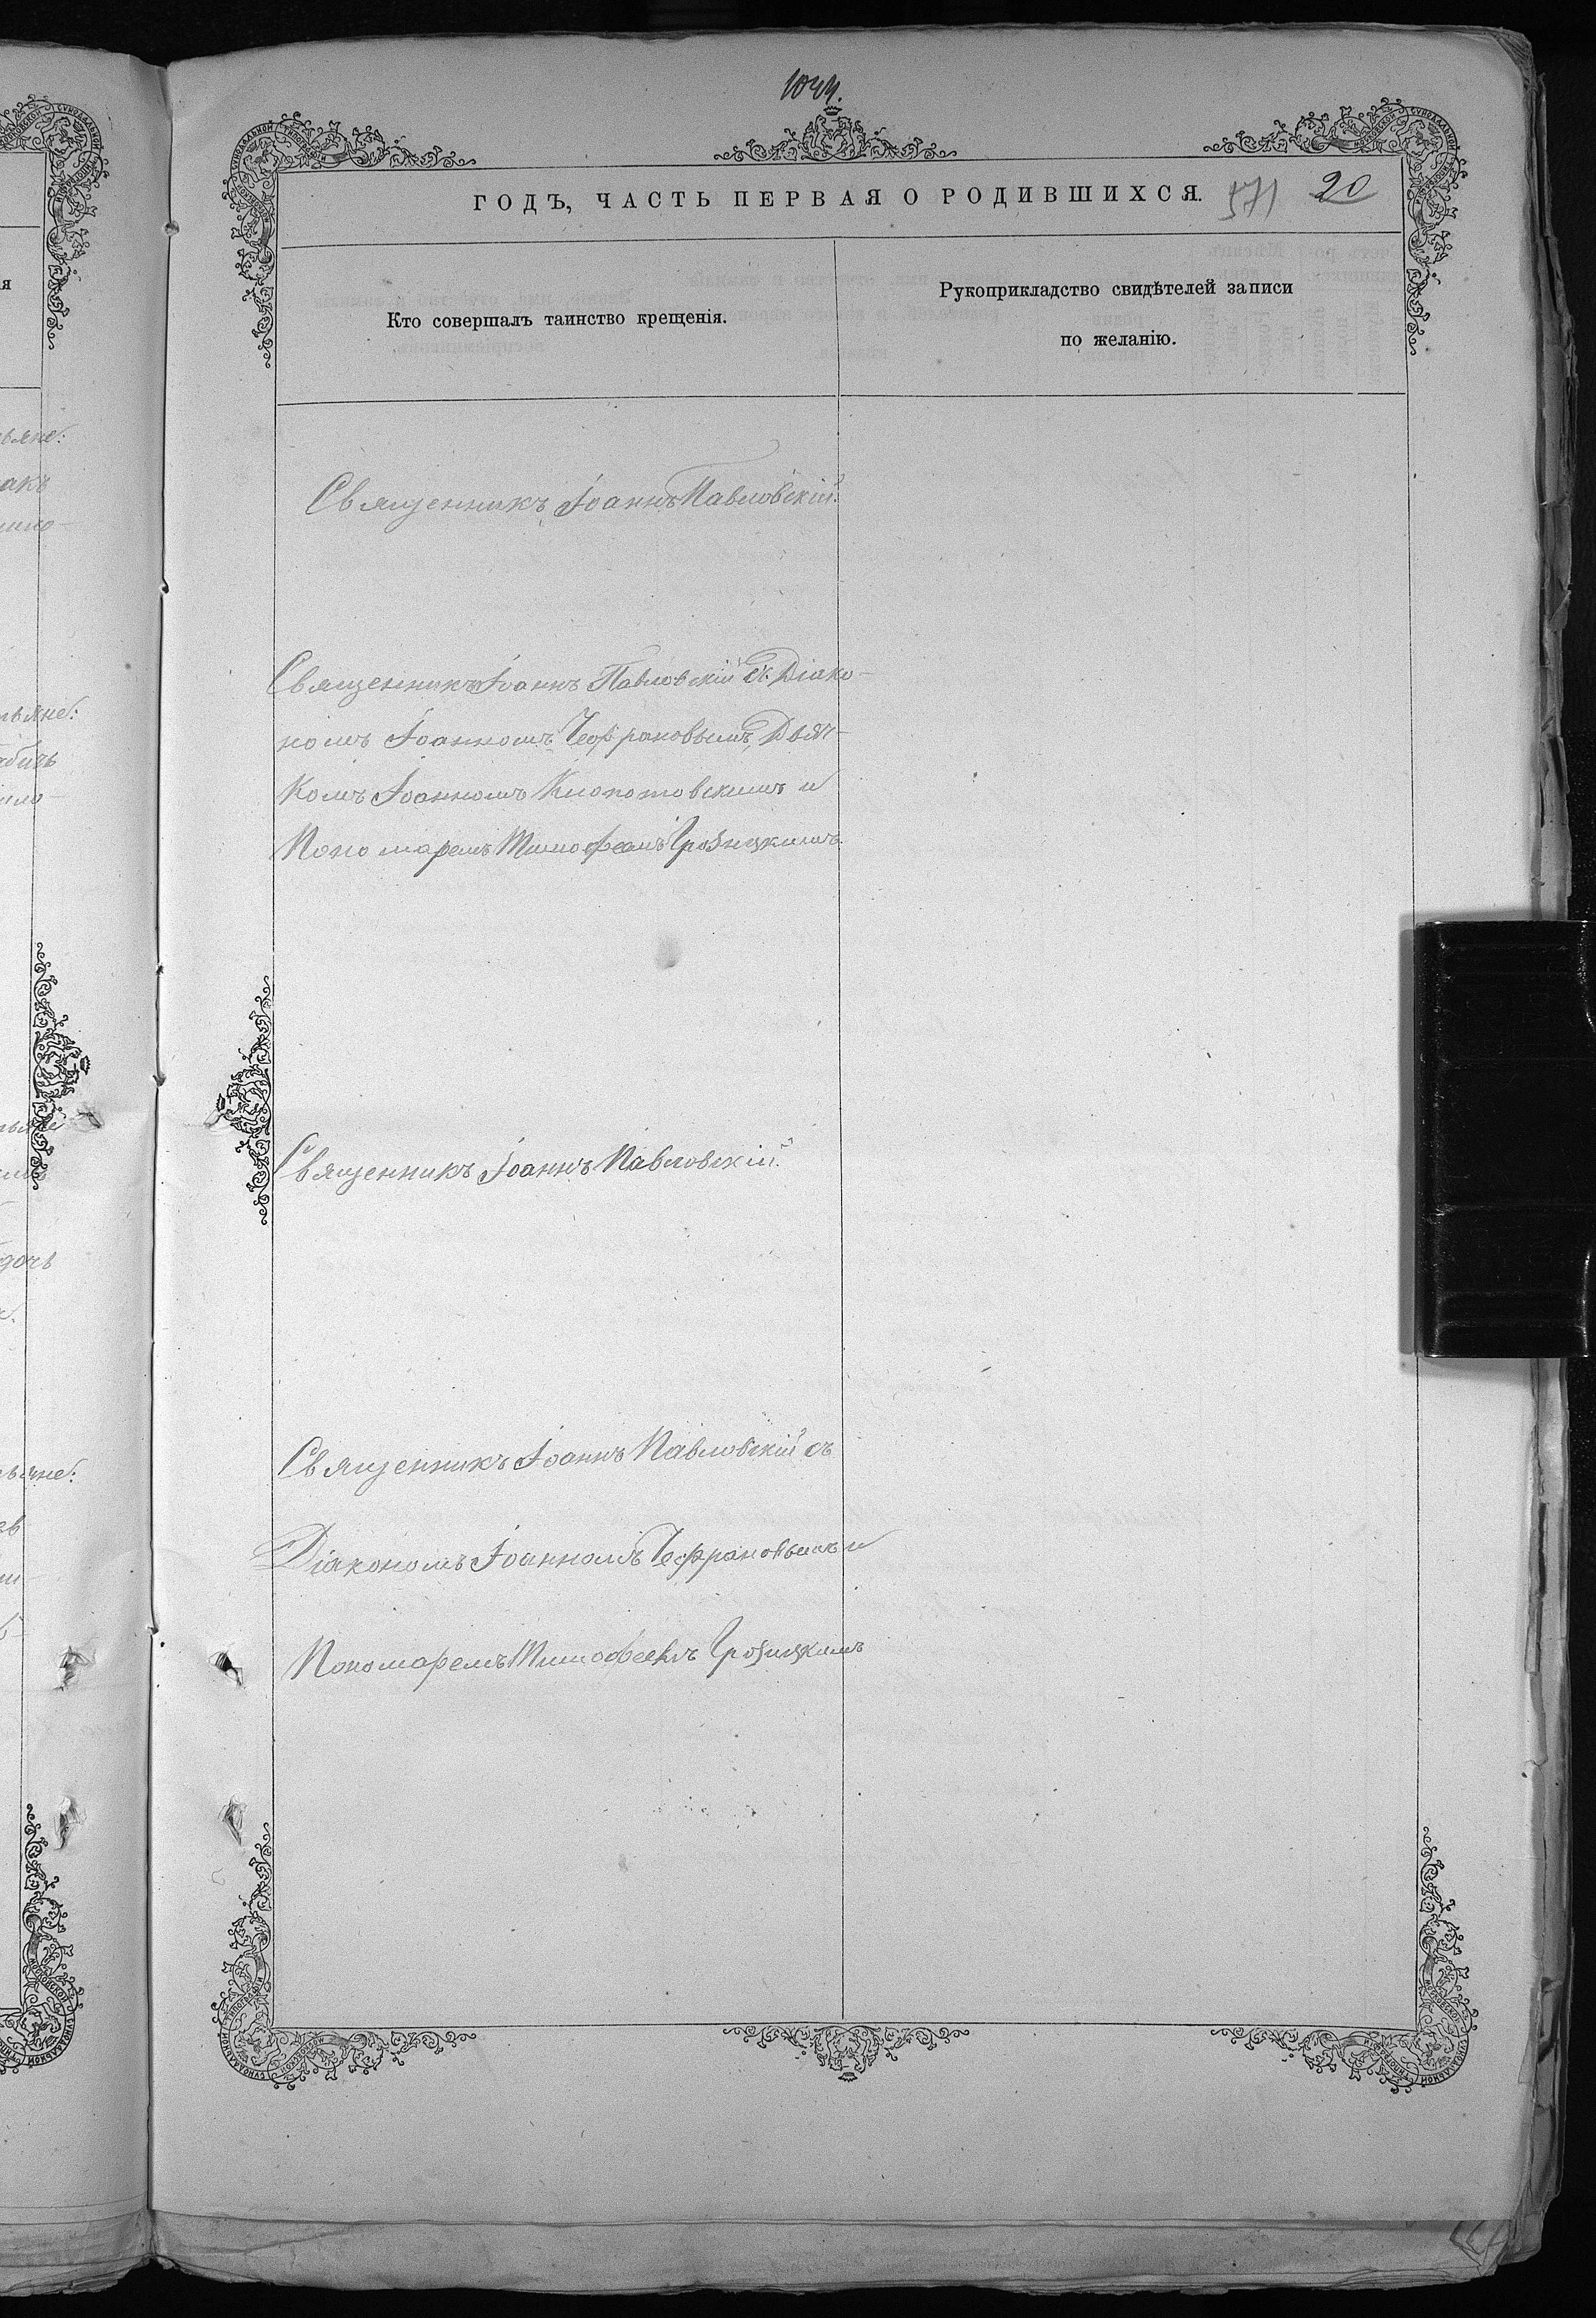 ГОДЪ, ЧАСТЬ ПЕРВАЯ О РОДИВШИХСЯ. 571 20
Кто совершалъ таинство крещенія.
Рукоприкладство свидѣтелей записи
по желанію.
Священникъ Іоаннъ Павловскій.
Священникъ Іоаннъ Павловскій съ Діако-
номъ Іоанномъ Чефрановымъ, Дьяч-
комъ Іоанномъ Клопотовскимъ и
Пономаремъ Тимофеемъ Грозицкимъ.
Священникъ Іоаннъ Павловскій.
Священникъ Іоаннъ Павловскій съ
Діакономъ Іоанномъ Чефрановымъ и
Пономаремъ Тимофеемъ Грозицкимъ